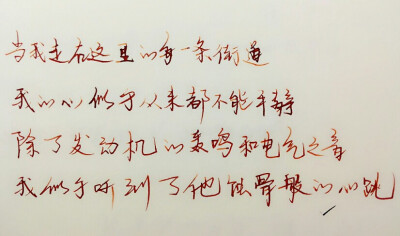 当我走在这里的每一条街道
我的心似乎从来都不能平静
除了发动机的轰鸣和电气之音
我似乎听到了他蚀骨般的心跳